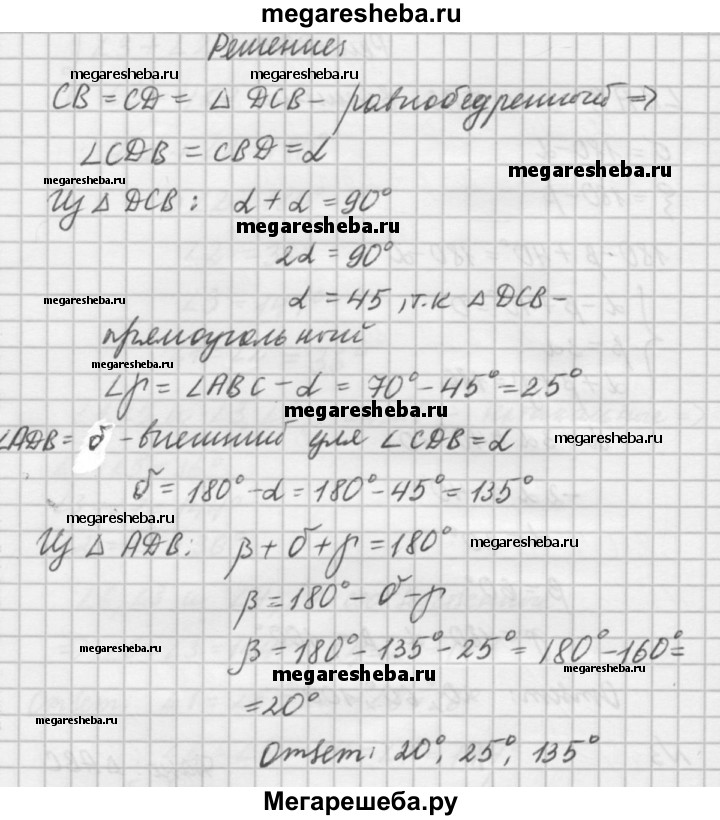 megaresheba.ru
Решение:
megaresheba.ru megaresheba.ru
CB = CD = △ DCB – равнобедренный ⇒
∠CDB = CBD = α
megaresheba.ru
megaresheba.ru
Из △ DCB: α + α = 90°
megaresheba.ru
2α = 90°
megaresheba.ru
α = 45, т.к △ DCB –
прямоугольный
megaresheba.ru
∠γ = ∠ABC – α = 70° – 45° = 25°
megaresheba.ru
∠ADB = δ - внешний для ∠CDB = α
megaresheba.ru
δ = 180° – α = 180° – 45° = 135°
megaresheba.ru
Из △ ADB: β + δ + γ = 180°
megaresheba.ru
β = 180° – δ – γ
megaresheba.ru
β = 180° – 135° – 25° = 180° – 160° =
megaresheba.ru
megaresheba.ru
= 20°
megaresheba.ru
Ответ: 20°, 25°, 135°
Мегарешеба.ру